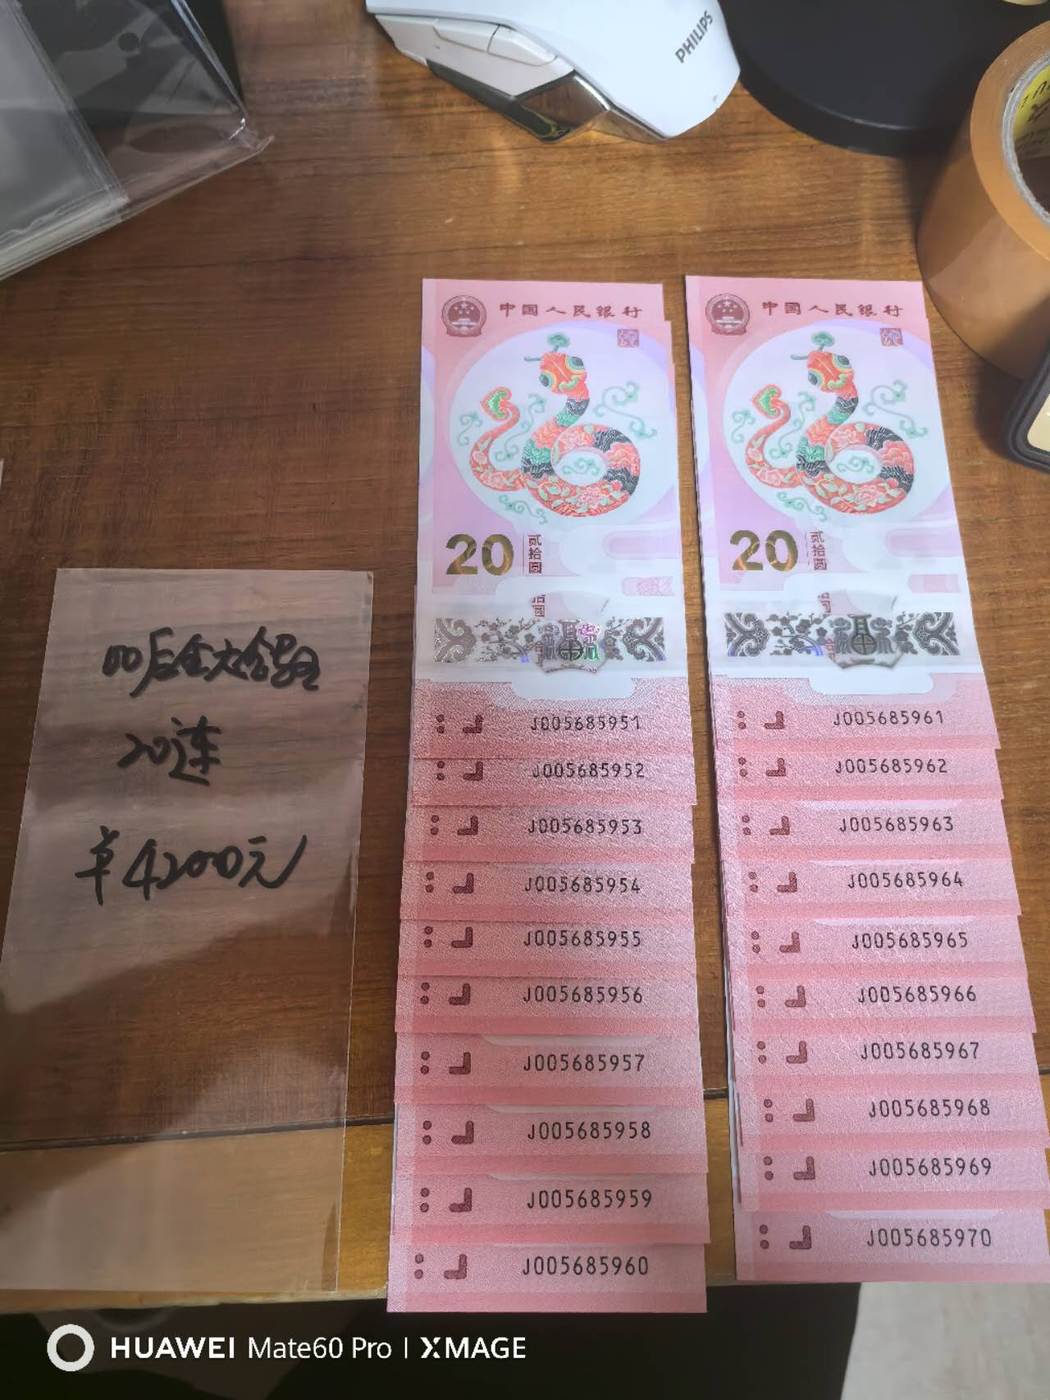 PHILIPS
00后全大冠号
20连
¥4200元
中国人民银行
20
贰拾圆
J005685951
J005685952
J005685953
J005685954
J005685955
J005685956
J005685957
J005685958
J005685959
J005685960
中国人民银行
20
贰拾圆
J005685961
J005685962
J005685963
J005685964
J005685965
J005685966
J005685967
J005685968
J005685969
J005685970
HUAWEI Mate60 Pro | XMAGE